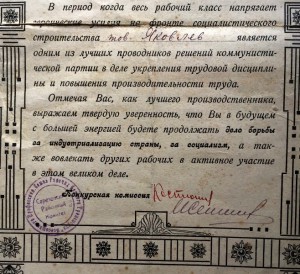 В период когда весь рабочий класс напрягает
героические усилия на фронте социалистического
строительства тов. Яковлев является
одним из лучших проводников решений коммунисти-
ческой партии в деле укрепления трудовой дисципли-
ны и повышения производительности труда.
Отмечая Вас, как лучшего производственника,
выражаем твердую уверенность, что Вы в будущем
с большей энергией будете продолжать дело борьбы
за индустриализацию страны, за социализм, а так-
же вовлекать других рабочих в активное участие
в этом великом деле.
Конкурсная комиссия